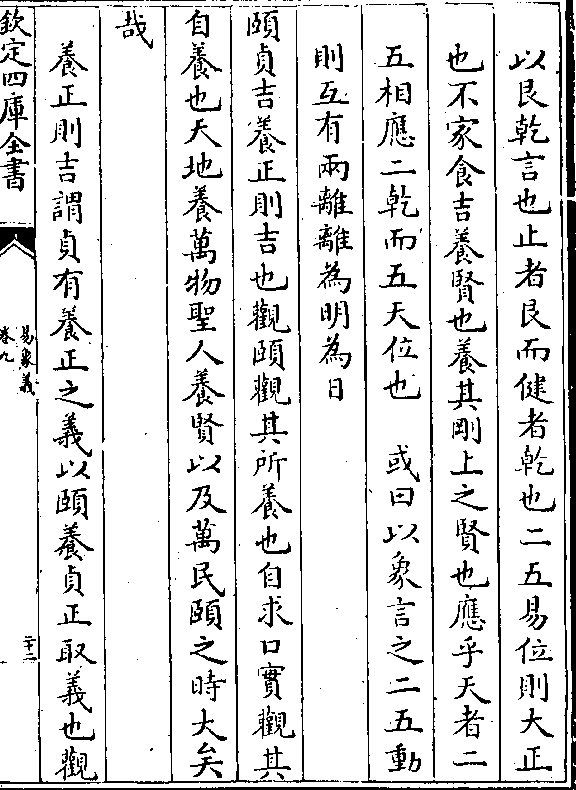 以艮乾言也止者艮而健者乾也二五易位則大正
也不家食吉養賢也養其剛上之賢也應乎天者二
五相應二乾而五天位也　或曰以象言之二五動
則互有兩離離為明為日
頤貞吉養正則吉也觀頤觀其所養也自求口實觀其
自養也天地養萬物聖人養賢以及萬民頤之時大矣
哉
養正則吉謂貞有養正之義以頤養貞正取義也觀
欽定四庫全書
易象義
卷九
二十二